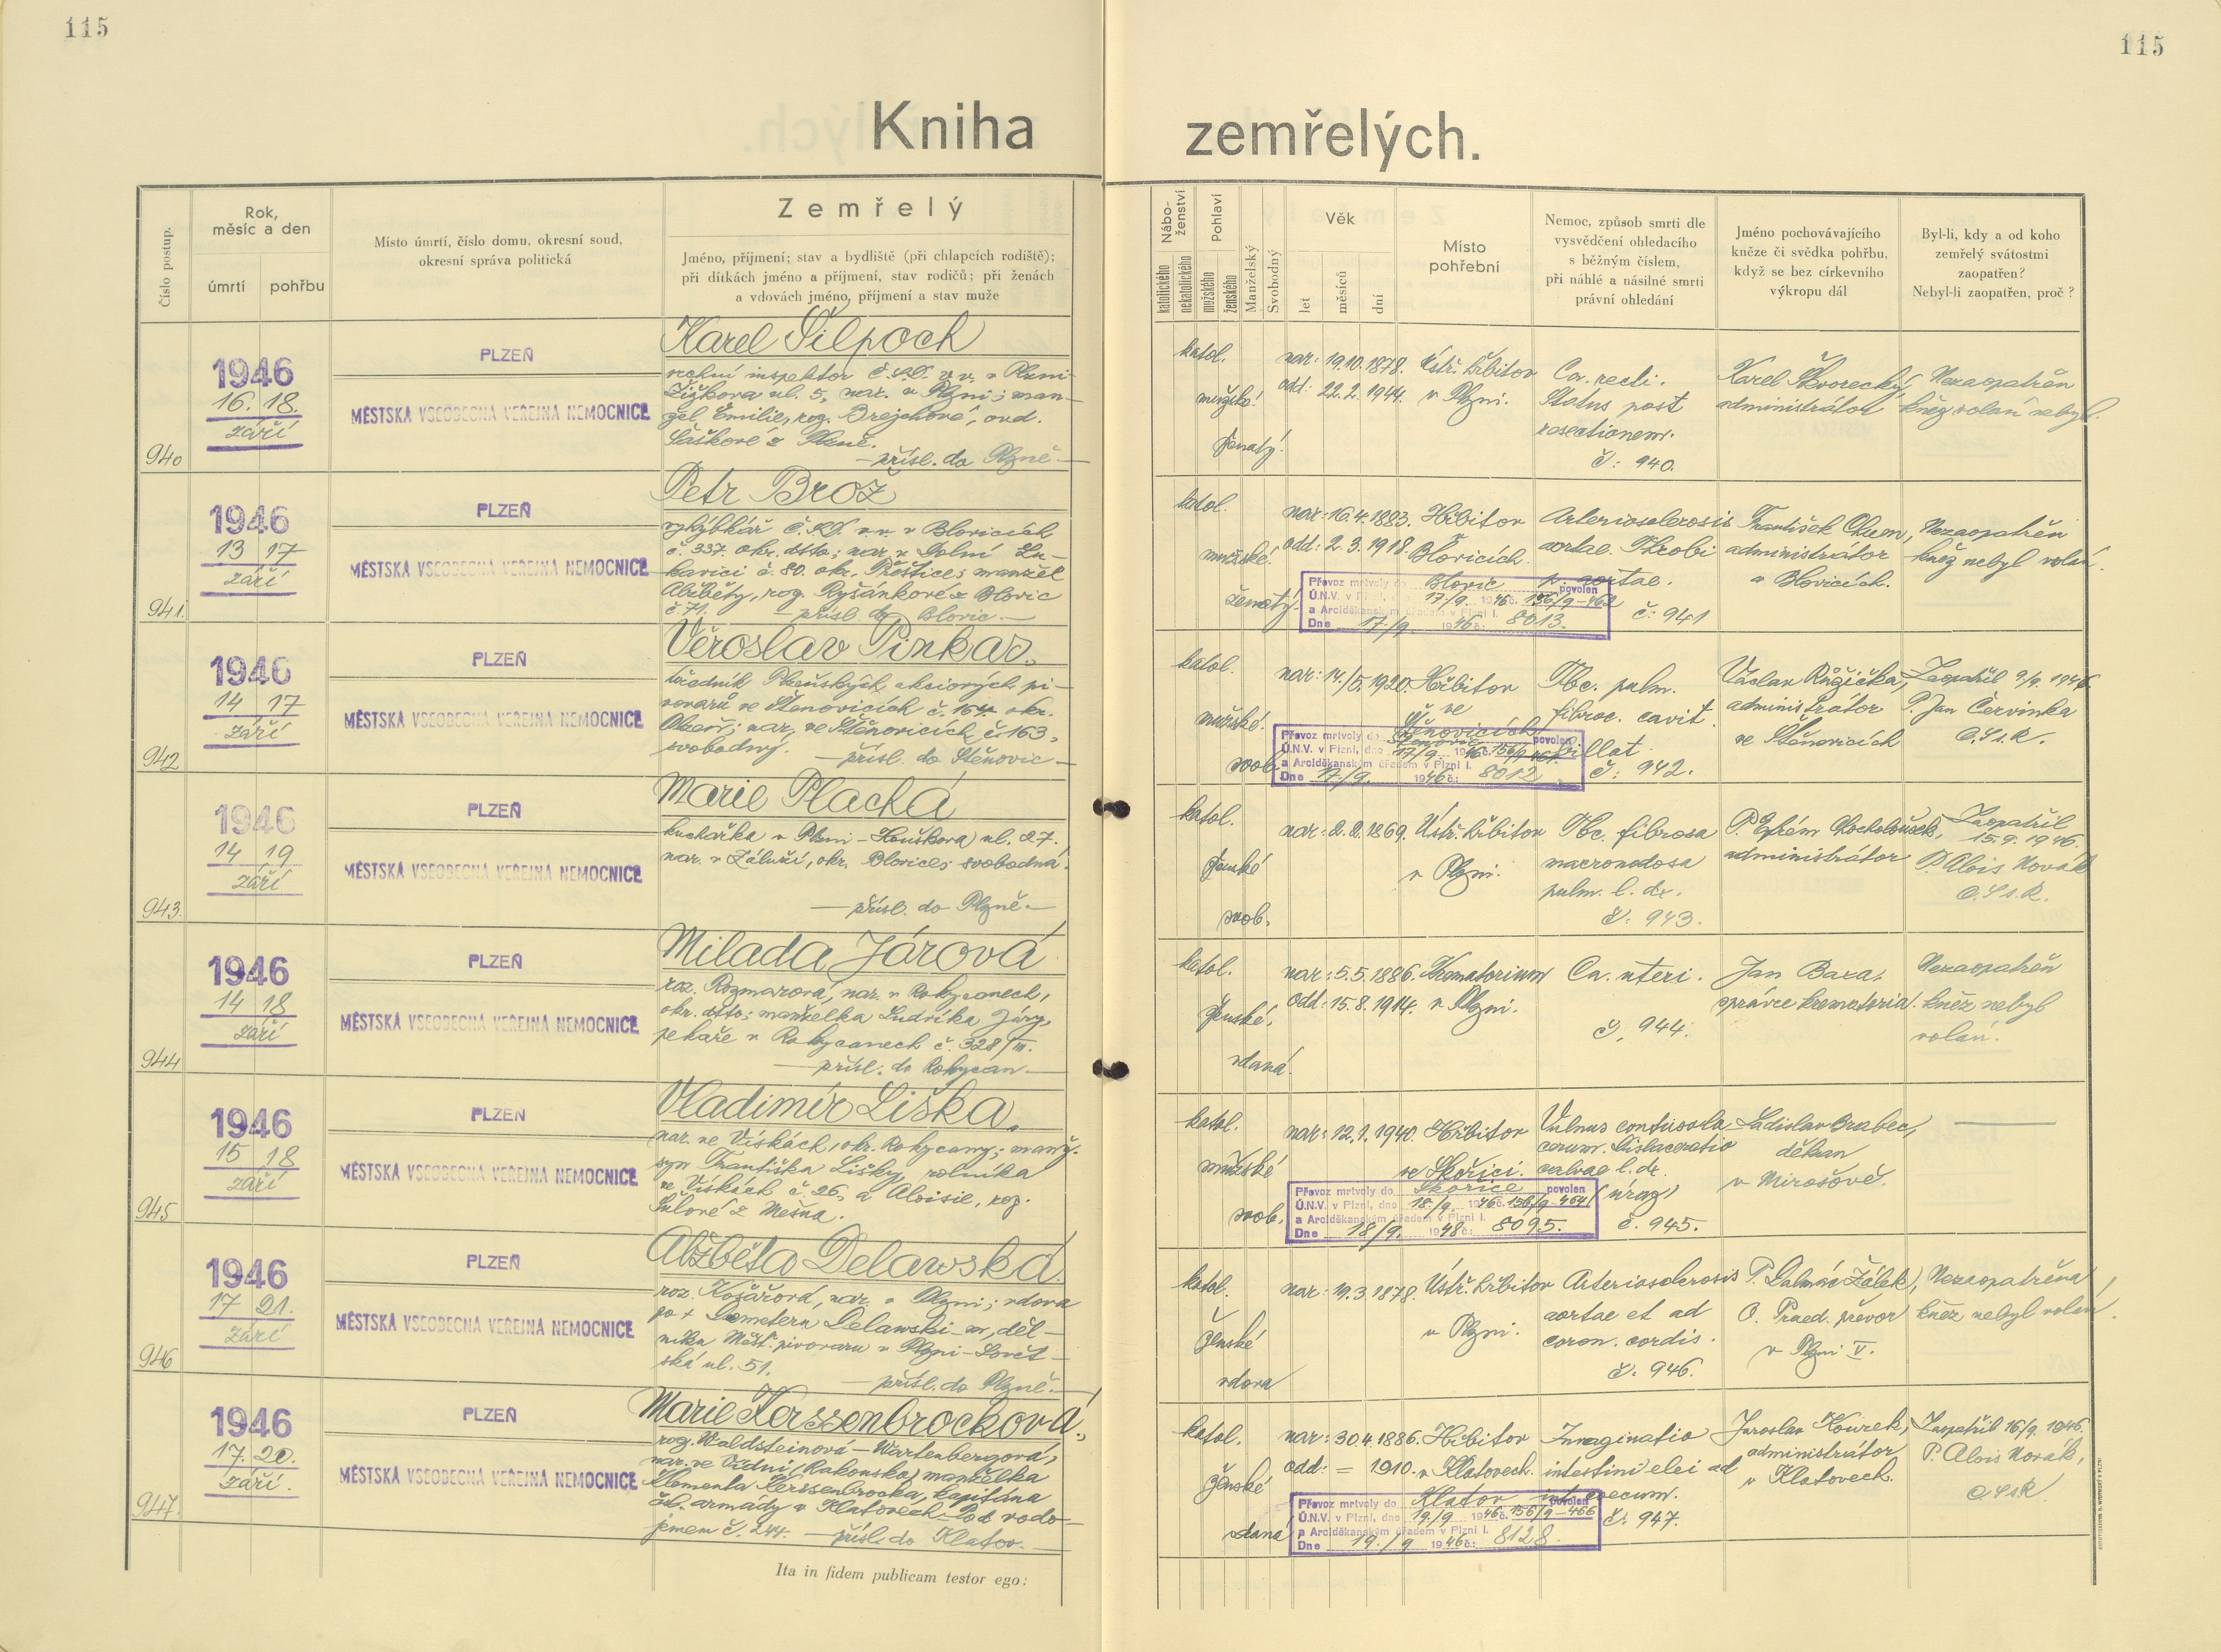 115
115
Kniha
zemřelých.
Číslo postup.
Rok,
měsíc a den
úmrtí
pohřbu
Místo úmrtí, číslo domu, okresní soud,
okresní správa politická
Zemřelý
Jméno, příjmení; stav a bydliště (při chlapcích rodiště);
při dítkách jméno a příjmení, stav rodičů; při ženách
a vdovách jméno, příjmení a stav muže
Nábo-
ženství
katolického
nekatolického
Pohlaví
mužského
ženského
Manželský
Svobodný
Věk
let
měsíců
dní
Místo
pohřební
Nemoc, způsob smrti dle
vysvědčení ohledacího
s běžným číslem,
při náhlé a násilné smrti
právní ohledání
Jméno pochovávajícího
kněze či svědka pohřbu,
když se bez církevního
výkropu dál
Byl-li, kdy a od koho
zemřelý svátostmi
zaopatřen?
Nebyl-li zaopatřen, proč?
940
1946
16. 18.
září
PLZEŇ
MĚSTSKÁ VŠEOBECNÁ VEŘEJNÁ NEMOCNICE
Karel Šilpoch
vrchní inspektor Č.S.D. v.v. v Plzni-
Žižkova ul. 5, nar. v Plzni; man-
žel Emilie, roz. Brejchové, ovd.
Šaškové z Plzně.
— přísl. do Plzně —
katol.
mužské
ženatý.
nar: 19.10.1878.
odd: 22.2.1944.
Ústř. hřbitov
v Plzni.
Ca. recti.
Status post
resectionem.
č: 940.
Karel Škvorecký,
administrátor
Nezaopatřen
kněz volán nebyl.
941.
1946
13 17
září
PLZEŇ
MĚSTSKÁ VŠEOBECNÁ VEŘEJNÁ NEMOCNICE
Petr Brož
výhybkář Č.S.D. v.v. v Blovicích
č. 337. okr. dtto; nar. v Dolní Lu-
kavici č. 80. okr. Přeštice; manžel
Alžběty, roz. Ryšánkové z Blovic
č 71. — přísl. do Blovic —
katol.
mužské.
ženatý.
nar: 16.4.1883.
odd: 2.3.1918.
Hřbitov
Blovicích.
Arteriosclerosis
aortae. Throbi
p. aortae.
č: 941
František Chum,
administrátor
v Blovicích.
Nezaopatřen
kněz nebyl volán.
Převoz mrtvoly do Blovic povolen
Ú.N.V. v Plzni, dne 17/9. 1946 č. 156/9-462
a Arciděkanským úřadem v Plzni I.
Dne 17/9. 1946 č: 8013.
942
1946
14 17
září
PLZEŇ
MĚSTSKÁ VŠEOBECNÁ VEŘEJNÁ NEMOCNICE
Věroslav Pinkas.
úředník Plzeňských akciových pi-
vovarů ve Štěnovicích č. 164. okr.
Plzeň; nar. ve Štěnovicích č. 163,
svobodný. — přísl. do Štěnovic —
katol.
mužské.
svob.
nar: 14./5.1920.
Hřbitov
ve
Štěnovicích
Tbc. pulm.
fibroc. cavit.
č: 942.
Václav Růžička,
administrátor
ve Štěnovicích
Zaopatřil 9/9. 1946
P. Jan Červinka
C.Ss.R.
Převoz mrtvoly do Štěnovic povolen
Ú.N.V. v Plzni, dne 17/9. 1946 č. 156/9-461
a Arciděkanským úřadem v Plzni I.
Dne 17/9. 1946 č: 8012
943.
1946
14 19
září
PLZEŇ
MĚSTSKÁ VŠEOBECNÁ VEŘEJNÁ NEMOCNICE
Marie Plachá
kuchařka v Plzni - Houškova ul. 27.
nar. v Záluží, okr. Blovice; svobodná.
— přísl. do Plzně —
katol.
ženské
svob.
nar: 2.2.1869.
Ústř. hřbitov
v Plzni.
Tbc. fibrosa
macronodosa
pulm. l. dx.
č: 943.
P. Efrém Chocholoušek,
administrátor
Zaopatřil
15.9.1946.
P. Alois Novák
C.Ss.R.
944
1946
14 18
září
PLZEŇ
MĚSTSKÁ VŠEOBECNÁ VEŘEJNÁ NEMOCNICE
Milada Járová
roz. Rozmarová, nar. v Rokycanech,
okr. dtto; manželka Ludvíka Járy,
pekaře v Rokycanech č. 328/III.
— přísl. do Rokycan —
katol.
ženské.
vdaná.
nar: 5.5.1886.
odd: 15.8.1914.
Krematorium
v Plzni.
Ca. uteri.
č. 944.
Jan Baxa,
správce krematoria.
Nezaopatřen
kněz nebyl
volán.
945
1946
15 18
září
PLZEŇ
MĚSTSKÁ VŠEOBECNÁ VEŘEJNÁ NEMOCNICE
Vladimír Liška.
nar. ve Vískách, okr. Rokycany; manž.
syn Františka Lišky, rolníka
ve Vískách č. 26, a Aloisie, roz.
z Mešna.
katol.
mužské
svob.
nar: 12.1.1940.
Hřbitov
ve Skořici.
Vulnus contusola
calvae l. dx.
(úraz)
č. 945.
Ladislav Brabec,
děkan
v Mirošově.
Převoz mrtvoly do Skořice povolen
Ú.N.V. v Plzni, dne 18/9. 1946 č. 156/9-464
a Arciděkanským úřadem v Plzni I.
Dne 18/9. 1946 č: 8095.
946
1946
17 21.
září
PLZEŇ
MĚSTSKÁ VŠEOBECNÁ VEŘEJNÁ NEMOCNICE
Alžběta Delawská.
roz. Košařová, nar. v Plzni; vdova
po + Demeteru Delawski-m, děl-
níku Měšť. pivovaru v Plzni - Sovět-
ská ul. 51. — přísl. do Plzně —
katol.
ženské
vdova
nar: 19.3.1878.
Ústř. hřbitov
v Plzni.
Arteriosclerosis
aortae et ad
coron. cordis.
č. 946.
P. Dalmáz Žálek,
O. Praed. převor
v Plzni V.
Nezaopatřena
kněz nebyl volán.
947.
1946
17. 20.
září.
PLZEŇ
MĚSTSKÁ VŠEOBECNÁ VEŘEJNÁ NEMOCNICE
Marie Kerssenbrocková.
roz. Waldsteinová - Wartenbergová,
nar. ve Vídni (Rakousko) manželka
Klementa Kerssenbrocka, kapitána
čsl. armády v Klatovech - Pod vodo-
jemem č. 244. — přísl. do Klatov —
katol.
ženské
vdaná
nar: 30.4.1886.
odd: = 1910.
Hřbitov
v Klatovech.
Invaginatio
intestini elei ad
int. coecum.
č: 947.
Jaroslav Kourek,
administrátor
v Klatovech.
Zaopatřil 16/9. 1946.
P. Alois Novák,
C.Ss.R.
Převoz mrtvoly do Klatov povolen
Ú.N.V. v Plzni, dne 19./9 1946 č. 156/9-466
a Arciděkanským úřadem v Plzni I.
Dne 19./9 1946 č: 8128.
Ita in fidem publicam testor ego: